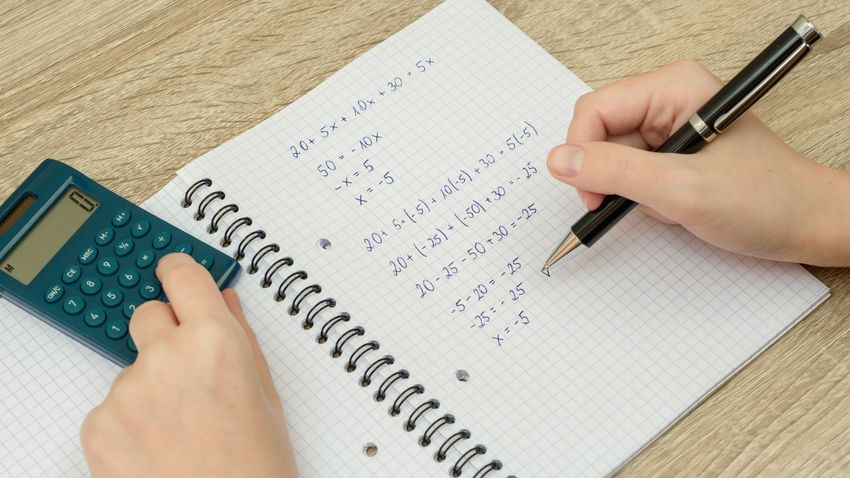 20 + 5x + 10x + 30 = 5x
50 = -10x
-x = 5
x = -5
20 + 5·(-5) + 10(-5) + 30 = 5(-5)
20 + (-25) + (-50) + 30 = -25
20 - 25 - 50 + 30 = -25
-5 - 20 = -25
-25 = -25
x = -5
M
M- M+
MRC % ÷
CE 9 6
ON/C 7 8 5 3
4 2
1